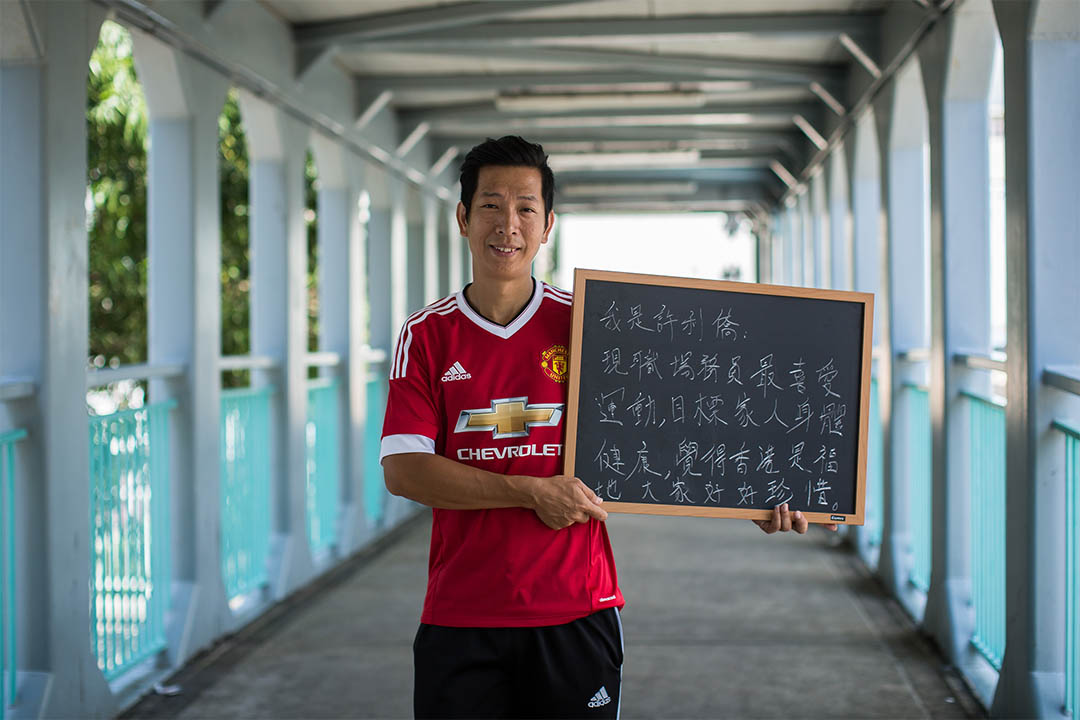 我是許利僑:
現職場務員最喜愛
運動,目標家人身體
健康,覺得香港是福
地大家好好珍惜。
adidas
MANCHESTER
UNITED
CHEVROLET
adidas